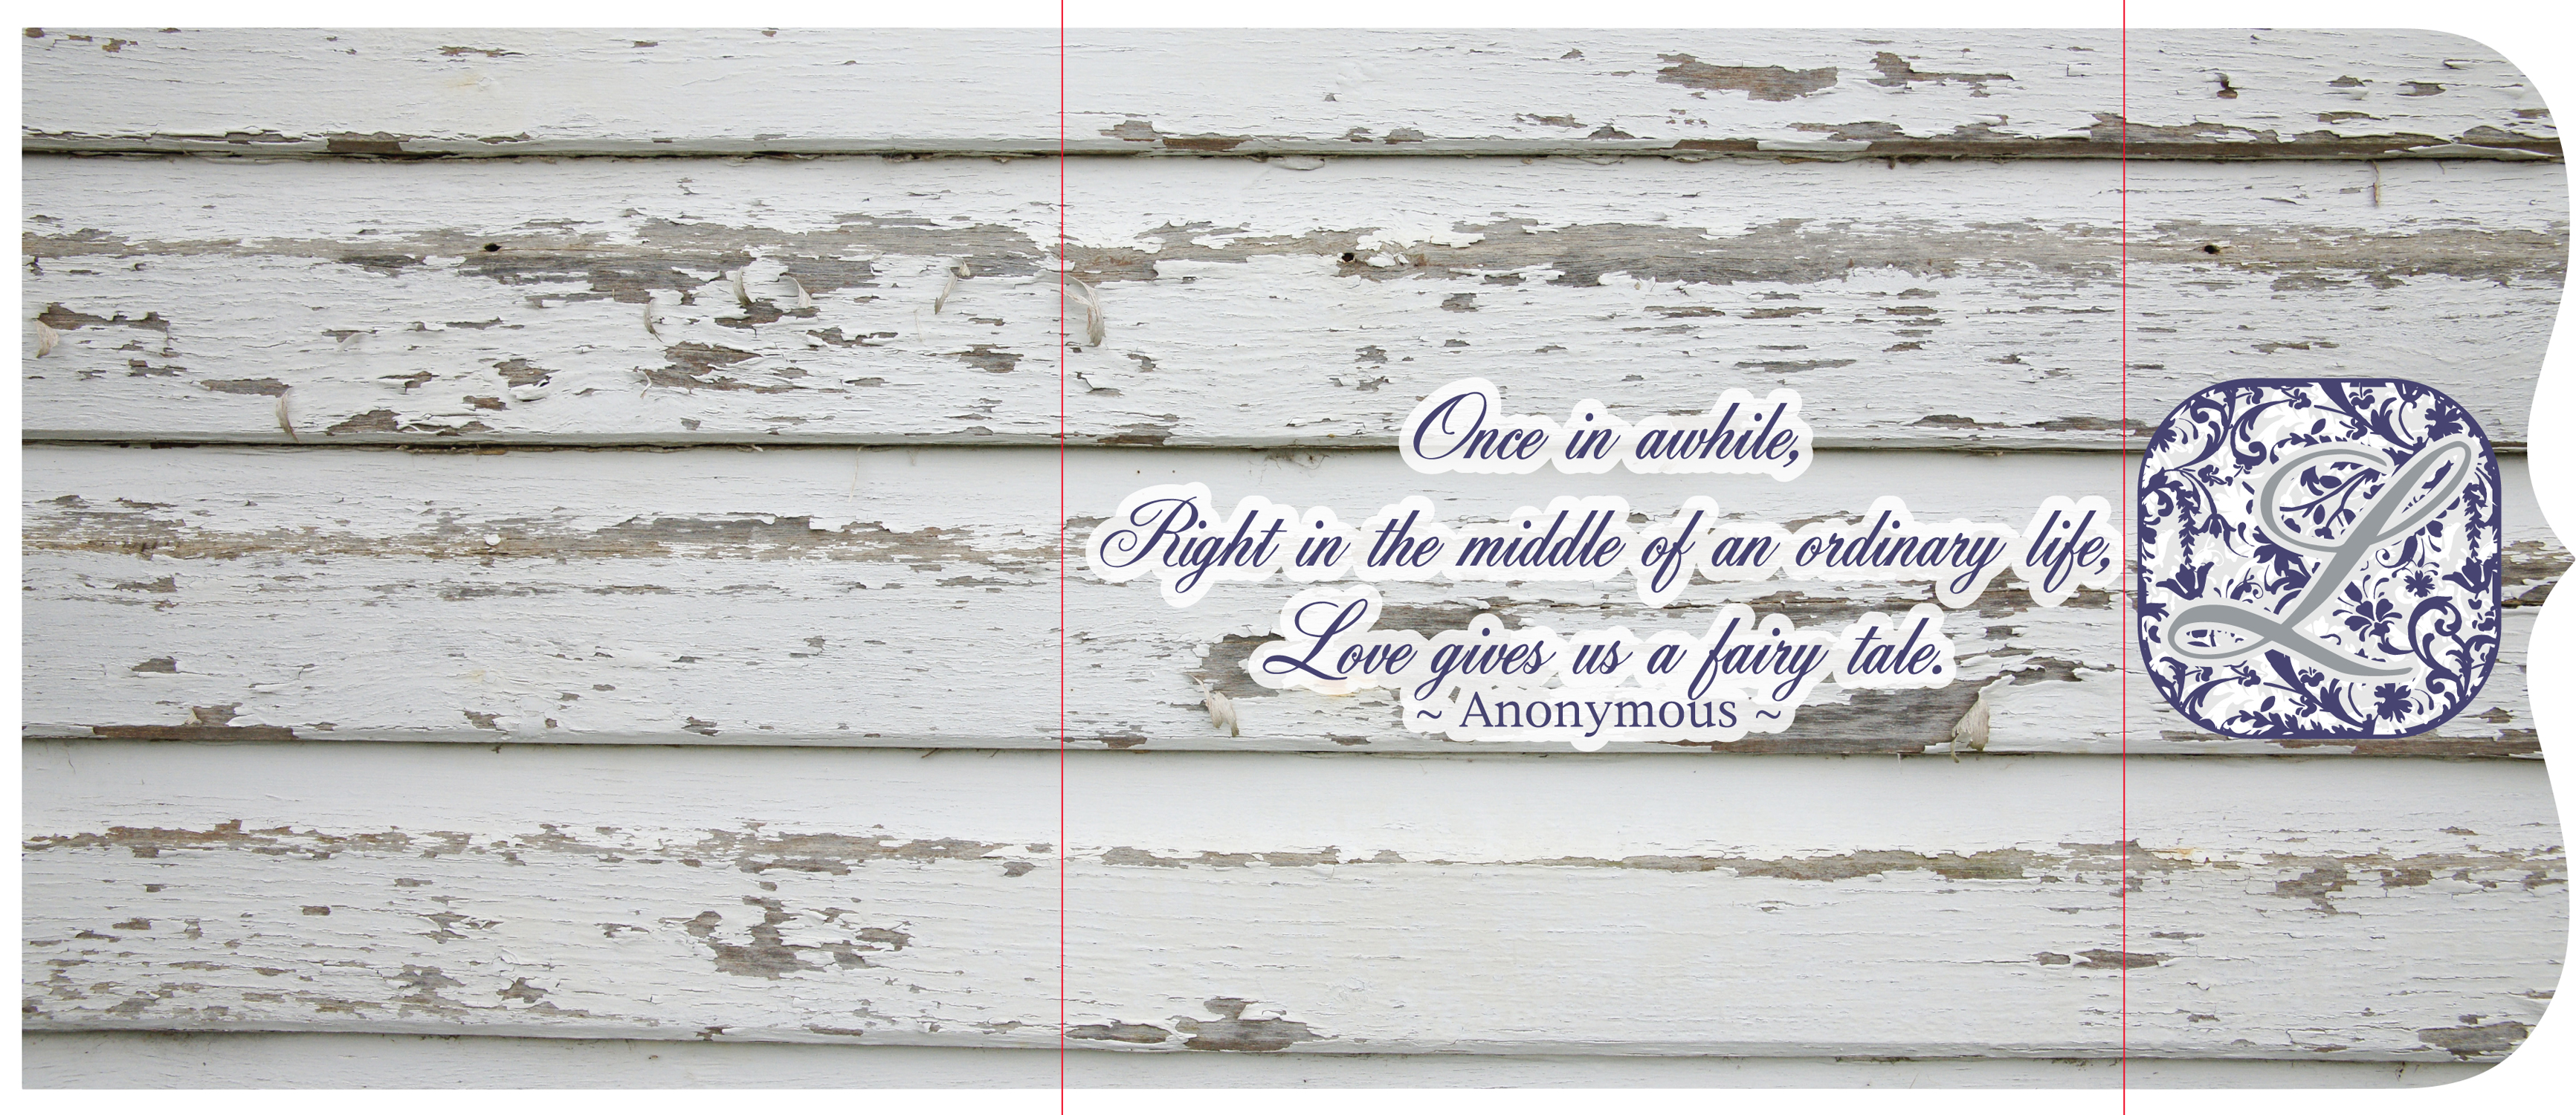 Once in awhile,
Right in the middle of an ordinary life,
Love gives us a fairy tale.
~ Anonymous ~
L